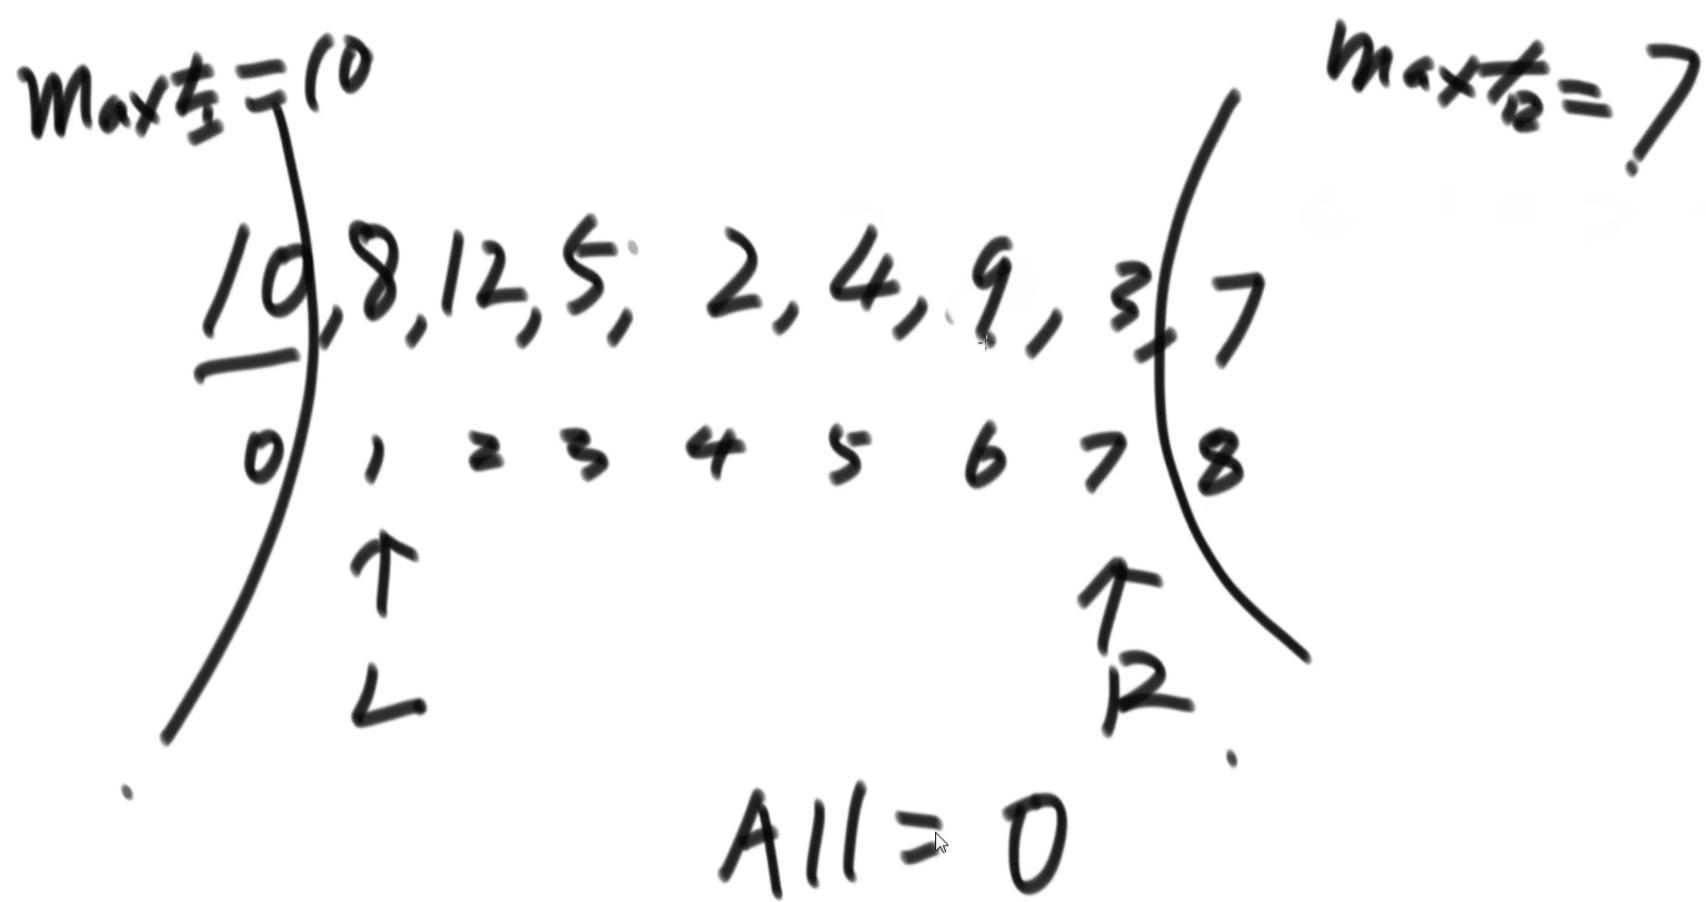 max左=10
max右=7
10,8,12,5,2,4,9,3,7
0 1 2 3 4 5 6 7 8
L R
All=0